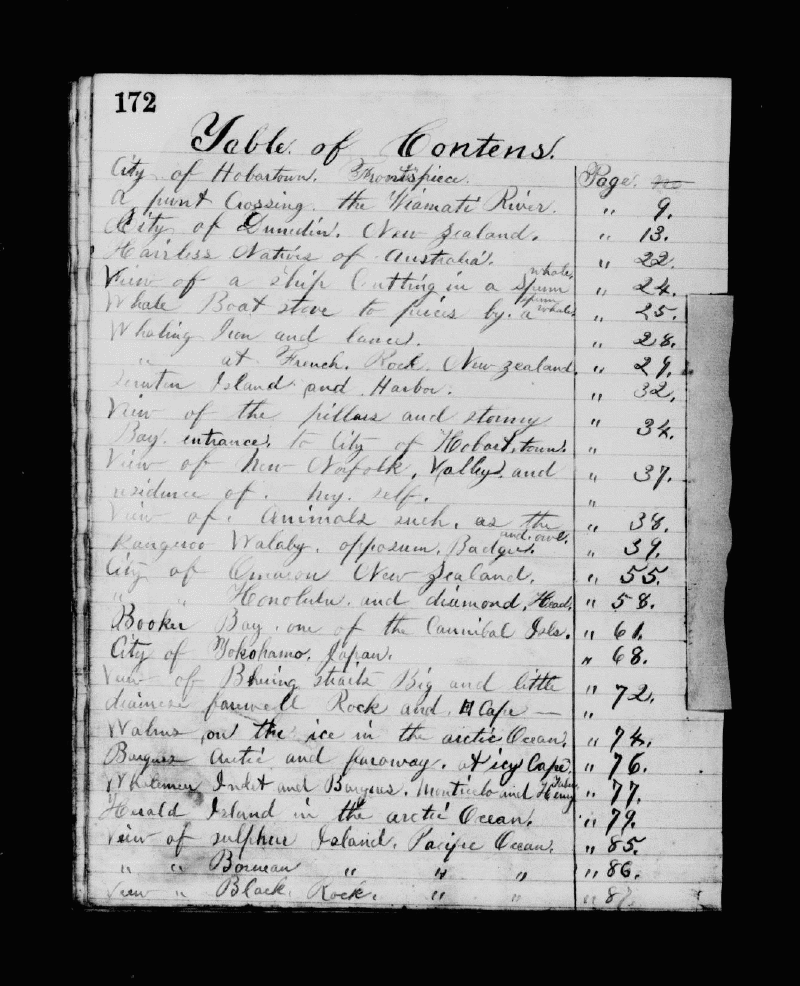 172
Table of Contens.
City of Hobartown. Frontispiece. Page. no
A punt Crossing the Wiamati River. " 9.
City of Dunedin. New Zealand. " 13.
Hairless Natives of Australia. " 22.
View of a ship Cutting in a sperm whale. " 24.
Whale Boat stove to peices by a sperm whale " 25.
Whaling Iron and lance. " 28.
" at French. Rock. New Zealand. " 29.
Island and Harbor. " 32.
View of the pillars and stormy " 34.
Bay. entrance. to City of Hobart. town. "
View of New Norfolk. Valley. and " 37.
residence of. my. self. "
View of. Animals such. as the " 38.
Kangeroo Walaby. opposum. Badger. and owl. " 39.
City of Omaron New Zealand. " 55.
" " Honolulu. and diamond. Head. " 58.
Booker Bay. one of the Cannibal Isls. " 61.
City of Yokohamo. Japan. " 68.
View of Bhering straits Big and little " 72.
diamese farwell Rock and Cape — "
Walrus on the ice in the arctic Ocean. " 74.
Barques Arctic and faraway. at icy Cape. " 76.
Whalemen Inlet and Barques. Monticelo and Henry " 77.
Herald Island in the arctic Ocean. " 79.
View of sulphur Island. Pacific Ocean. " 85.
" " Bornean " " " " 86.
View " Black. Rock. " " " 87.